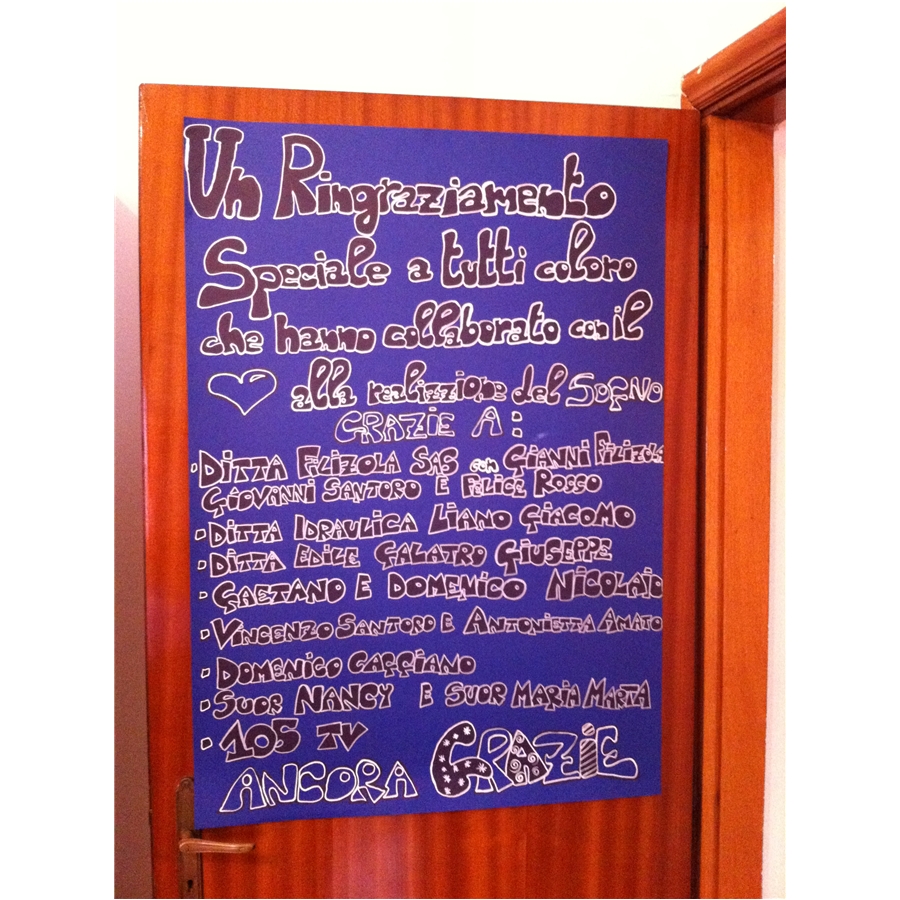 Un Ringraziamento
Speciale a tutti coloro
che hanno collaborato con il
alla realizzione del SOGNO
GRAZIE A:
DITTA FILIZOLA SAS con GIANNI FILIZOLA
GIOVANNI SANTORO E FELICE ROSSO
DITTA IDRAULICA LIANO GIACOMO
DITTA EDILE GALATRO GIUSEPPE
GAETANO E DOMENICO NICOLAIO
VINCENZO SANTORO E ANTONIETTA AMATO
DOMENICO GAGGIANO
SUOR NANCY E SUOR MARIA MARTA
105 TV
ANCORA GRAZIE